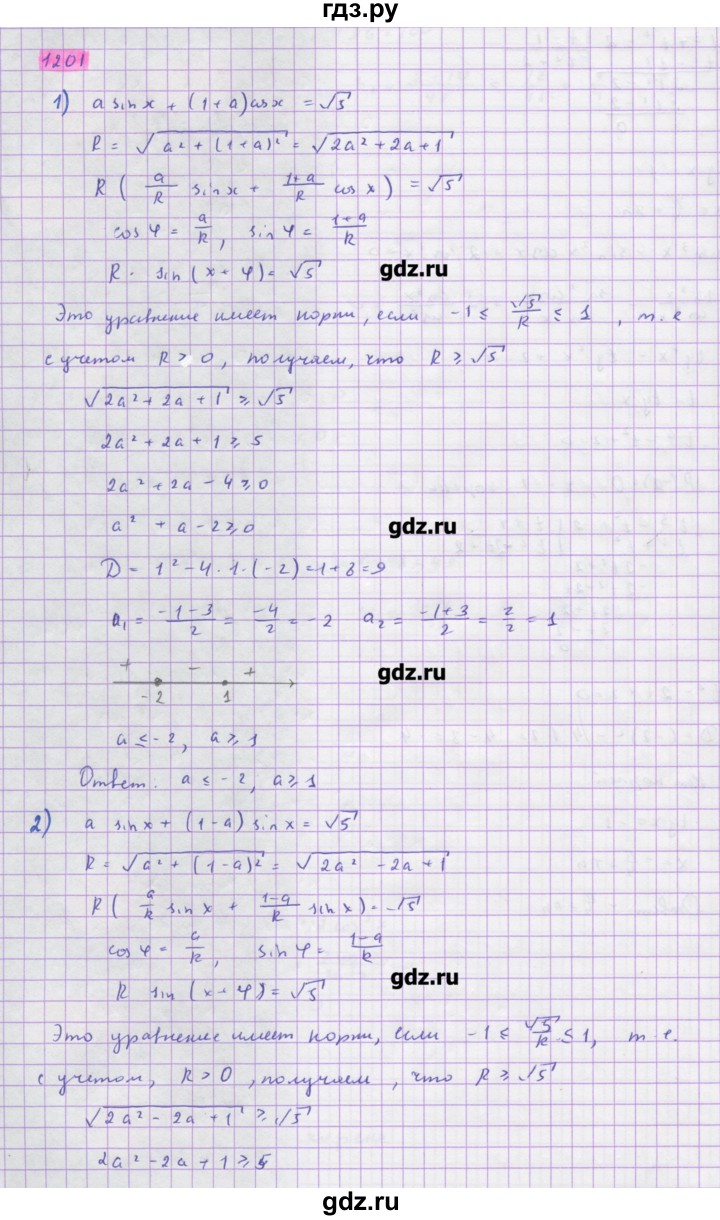 гдз.ру
1201
1) a sin x + (1+a) cos x = √5
R = √(a² + (1+a)²) = √(2a² + 2a + 1)
R ( a/R sin x + (1+a)/R cos x ) = √5
cos φ = a/R, sin φ = (1+a)/R
R · sin (x + φ) = √5
gdz.ru
Это уравнение имеет корни, если -1 ≤ √5/R ≤ 1, т.е
с учетом R > 0, получаем, что R ≥ √5
√(2a² + 2a + 1) ≥ √5
2a² + 2a + 1 ≥ 5
2a² + 2a - 4 ≥ 0
a² + a - 2 ≥ 0
gdz.ru
D = 1² - 4 · 1 · (-2) = 1 + 8 = 9
a₁ = (-1-3)/2 = -4/2 = -2 a₂ = (-1+3)/2 = 2/2 = 1
+ - +
gdz.ru
-2 1
a ≤ -2, a ≥ 1
Ответ: a ≤ -2, a ≥ 1
2) a sin x + (1-a) sin x = √5
R = √(a² + (1-a)²) = √(2a² - 2a + 1)
R ( a/R sin x + (1-a)/R sin x ) = √5
cos φ = a/R, sin φ = (1-a)/R
gdz.ru
R sin (x + φ) = √5
Это уравнение имеет корни, если -1 ≤ √5/R ≤ 1, т.е.
с учетом, R > 0, получаем, что R ≥ √5
√(2a² - 2a + 1) ≥ √5
2a² - 2a + 1 ≥ 5
gdz.ru